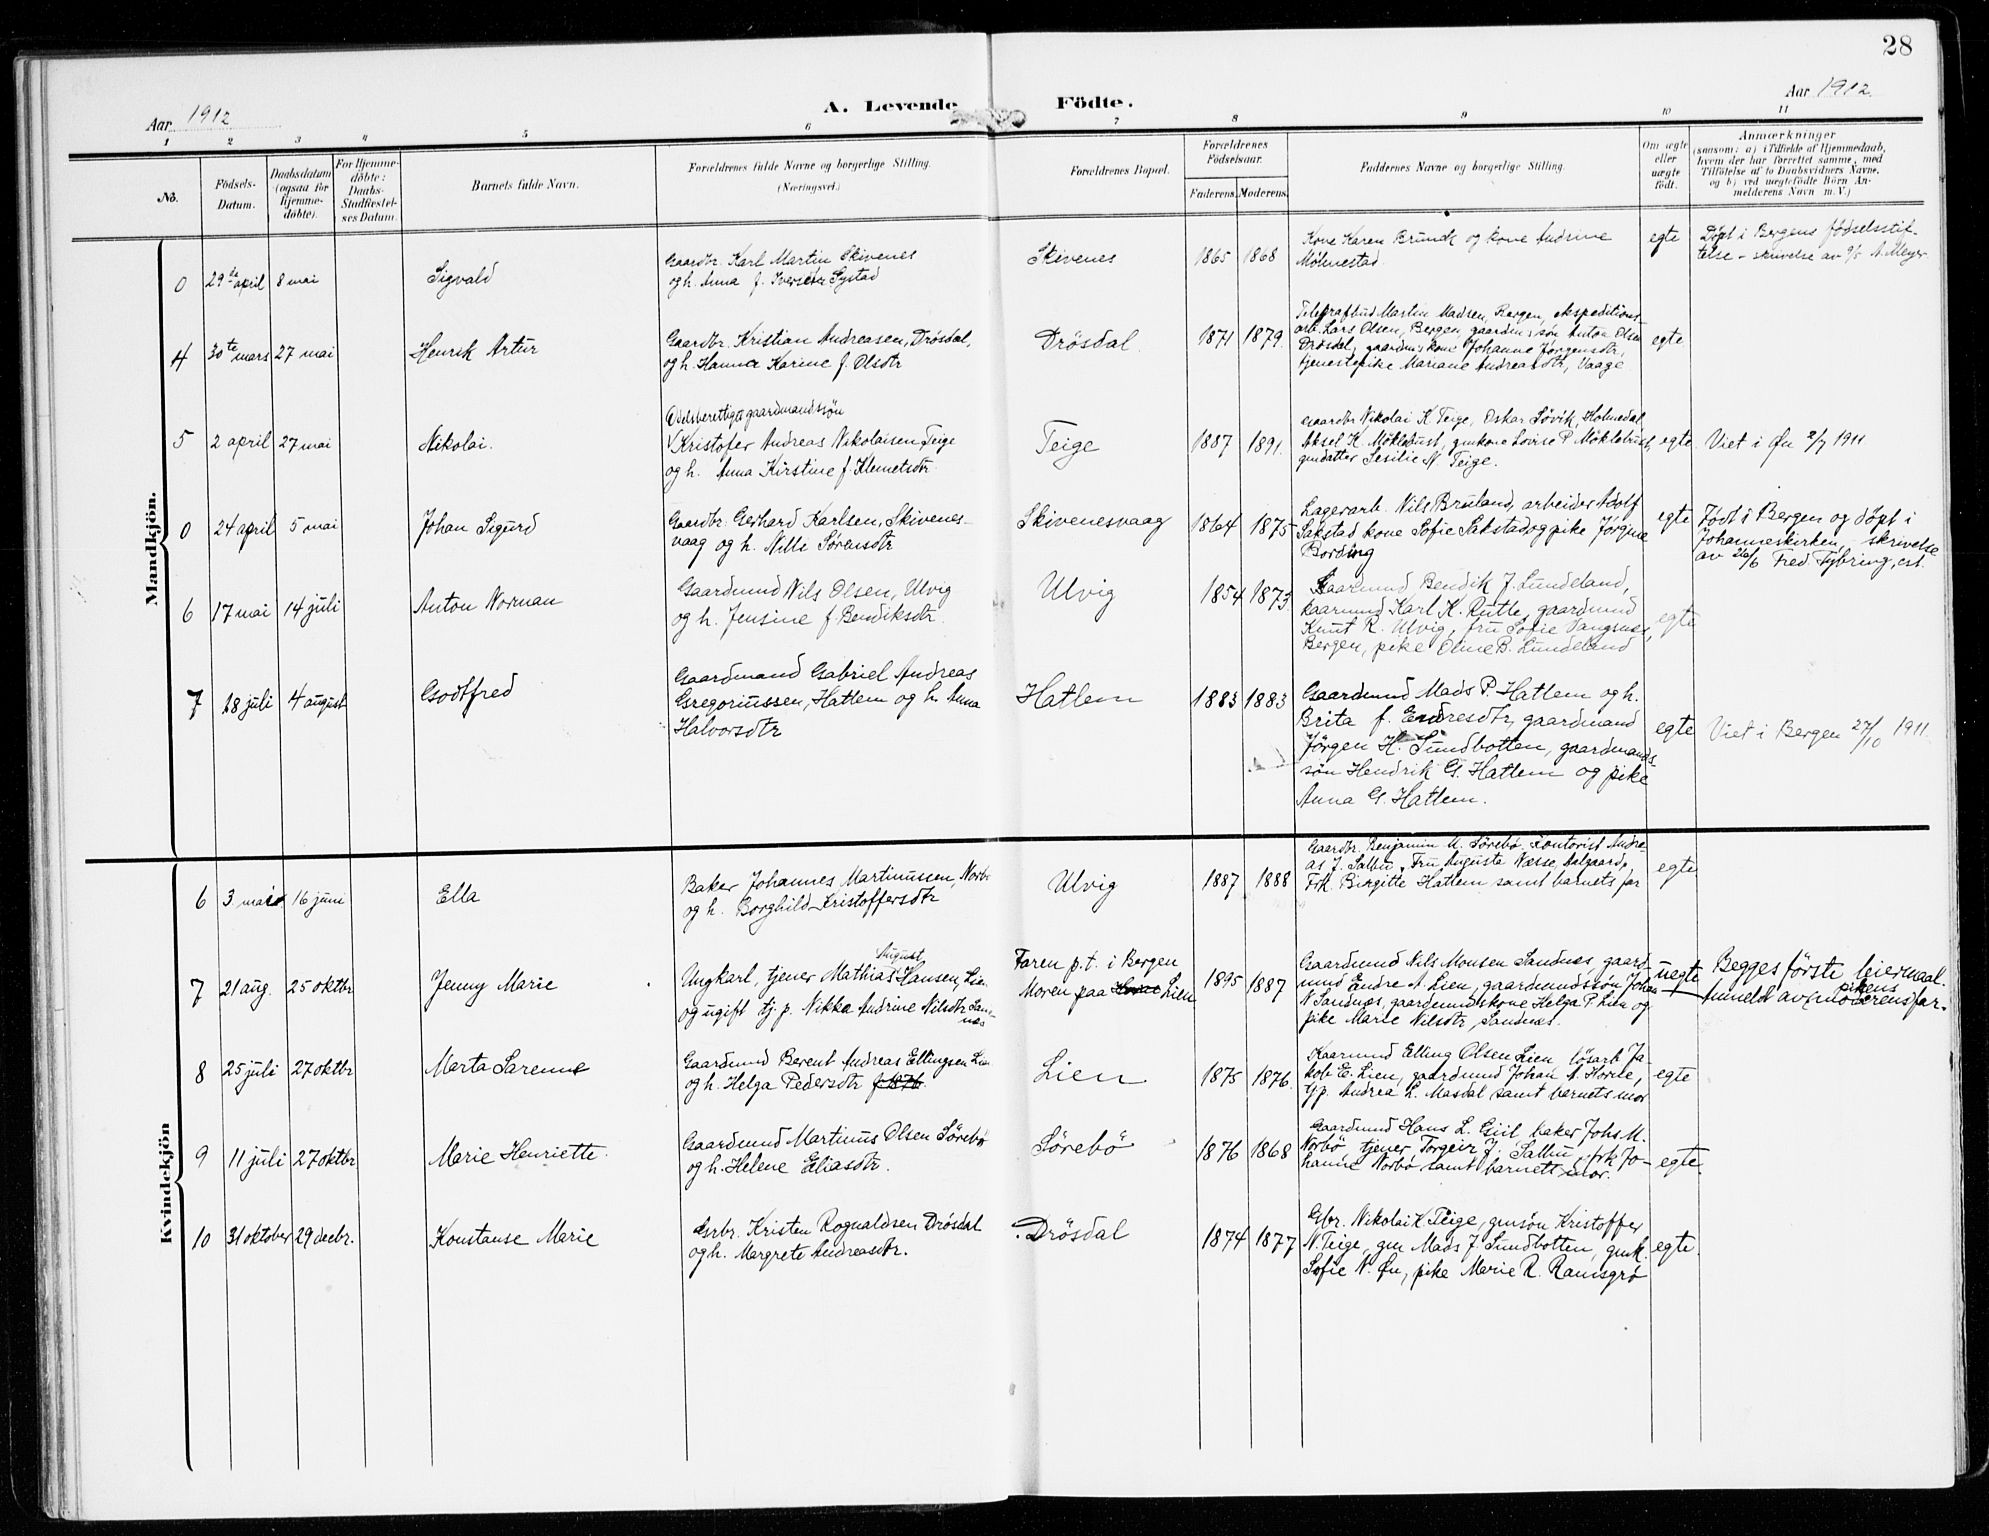 28
Aar 1912
A. Levende Födte.
Aar 1912
1 2 3 4 5 6 7 8 9 10 11
No.
Födsels-Datum.
Daabsdatum (ogsaa for hjemme-döbte).
For Hjemme-döbte: Daabs-Stadfæstel-ses Datum.
Barnets fulde Navn.
Forældrenes fulde Navne og borgerlige Stilling. (Næringsvei.)
Forældrenes Bopæl.
Forældrenes Födselsaar.
Faderens. Moderens.
Faddernes Navne og borgerlige Stilling.
Om ægte eller uægte født.
Anmærkninger
(saasom: a) i Tilfælde af Hjemmedaab,
hvem der har forrettet samme, med
Tilföielse af to Daabsvidners Navne,
og b) ved uægtefödte Börn An-
melderens Navn m. V.)
Mandkjön.
0 29de april 8 mai Sigvald
Gaardbr. Karl Martin Skivenes
og h. Anna f. Iversdtr Systad
Skivenes 1865 1868
Kone Karen Brunck og kone Andrine
Mölmestad
egte
Döpt i Bergens födselsstif-
telse - skrivelse av 9/5 A. Meyer.
4 30te mars 27 mai Henrik Artur
Gaardbr. Kristian Andreasen, Drösdal,
og h. Hanna Karine f. Olsdtr
Drösdal. 1871 1879.
Telegrafbud Martin Madsen, Bergen, ekspeditions
arb. Lars Olsen, Bergen, gaardm:søn Anton Olsen
Drösdal, gaardm:kone Johanne Jørgensdtr,
tjenestepike Mariane Andreasdtr, Vaage
egte
5 2 april 27 mai Nikolai.
Odelsberettiget gaardmandssøn
Kristofer Andreas Nikolaisen, Teige
og h. Anna Kirstine f. Klemetsdtr.
Teige 1887 1891.
Gaardbr Nikolai K Teige, Oskar Lövik, Holmedal,
Aksel K. Möklebust, gmkone Lovise P. Möklebust,
gmdatter Sesilie N. Teige.
egte Viet i Øn 2/7 1911
0 24 april 5 mai Johan Sigurd
Gaardbr. Gerhard Karlsen, Skivenes-
vaag og h. Nille Sörensdtr
Skivenesvaag 1864 1875
Lagerarb. Nils Bruland, arbeider Adolf
Sakstad kone Sofie Sakstad og pike Jörgine
Bording
egte
Födt i Bergen og döpt i
Johanneskirken, skrivelse
av 26/6 Fred Tybring, est.
6 17 mai 14 juli Anton Norman
Gaardmund Nils Olsen, Ulvig
og h. Jensine f. Bendiksdtr.
Ulvig 1854 1873
Kaarmund Bendik J. Lundeland,
kaarmund Karl K. Rutle, gaardmund
Knut R. Ulvig, fru Sofie Vangsnes,
Bergen, pike Oline B. Lundeland
egte
7 18 juli 4 august Godtfred
Gaardmand Gabriel Andreas
Gregoriussen, Hatlem og h. Anna
Halvorsdtr
Hatlem 1883 1883
Gaardmund Mads P. Hatlem og h.
Brita f. Endresdtr, gaardmand
Jörgen H. Sundbotten, gaardmands-
søn Hendrik G. Hatlem og pike
Anna G. Hatlem.
egte Viet i Bergen 27/10 1911
Kvindekjön
6 3 mai 16 juni Ella
Baker Johannes Martinussen, Norbö
og h. Borghild Kristoffersdtr
Ulvig 1887 1888
Gaardbr. Benjamin M. Sörebö, Kontorist Andre-
as J. Salbu, Fru Augusta Næsse, Aalgaard,
Frk. Birgitte Hatlem samt barnets far
egte
7 21 aug. 25 oktbr Jenny Marie
August
Ungkarl, tjener Mathias Hansen, Lien
og ugift tj. p. Nikka Andrine Nilsdtr Sand-
næs
Faren p.t. i Bergen
Moren paa Lien
1895 1887
Gaardmund Nils Monsen Sandnæs, gaard-
mund Endre A. Lien, gaardmundssøn Johan
N Sandnæs, gaardmundskone Helga P. Lien og
pike Marie Nilsdtr, Sandnæs.
uegte
Begges förste leiermaal.
Anmeldt av pikens (moderens) far.
8 25 juli 27 oktbr Marta Sarenne
Gaardmund Berent Andreas Ellingsen Lien
og h. Helga Pedersdtr f. 1876.
Lien 1875 1876.
Kaarmund Elling Olsen Lien, lösarb Ja-
kob E. Lien, gaardmund Johan A. Hovle,
tjp. Andrea L. Masdal samt barnets mor
egte
9 11 juli 27 oktbr Marie Henriette.
Gaardmund Martinus Olsen Sörebö
og h. Helene Eliasdtr.
Sörebö 1876 1868
Gaardmund Hans L. Giil, baker Johs M.
Norbö, tjener Torgeir J. Salbu, frk Jo-
hanne Norbö samt barnets mor.
egte.
10 31 oktober 29 decbr. Konstanse Marie
Grbr. Kristen Rognaldsen Drösdal
og h. Margrete Andreasdtr.
Drösdal 1874 1877
Gbr. Nikolai K Teige, gmsøn Kristoffer
N. Teige, gm Mads J. Sundbotten, gmk.
Sofie N. Øn, pike Marie R. Ramsgrø
egte.